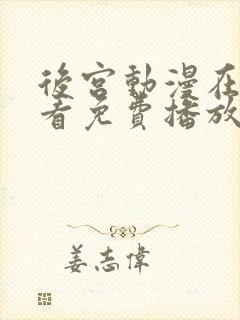 後宮動漫在
看免費播放
姜志偉